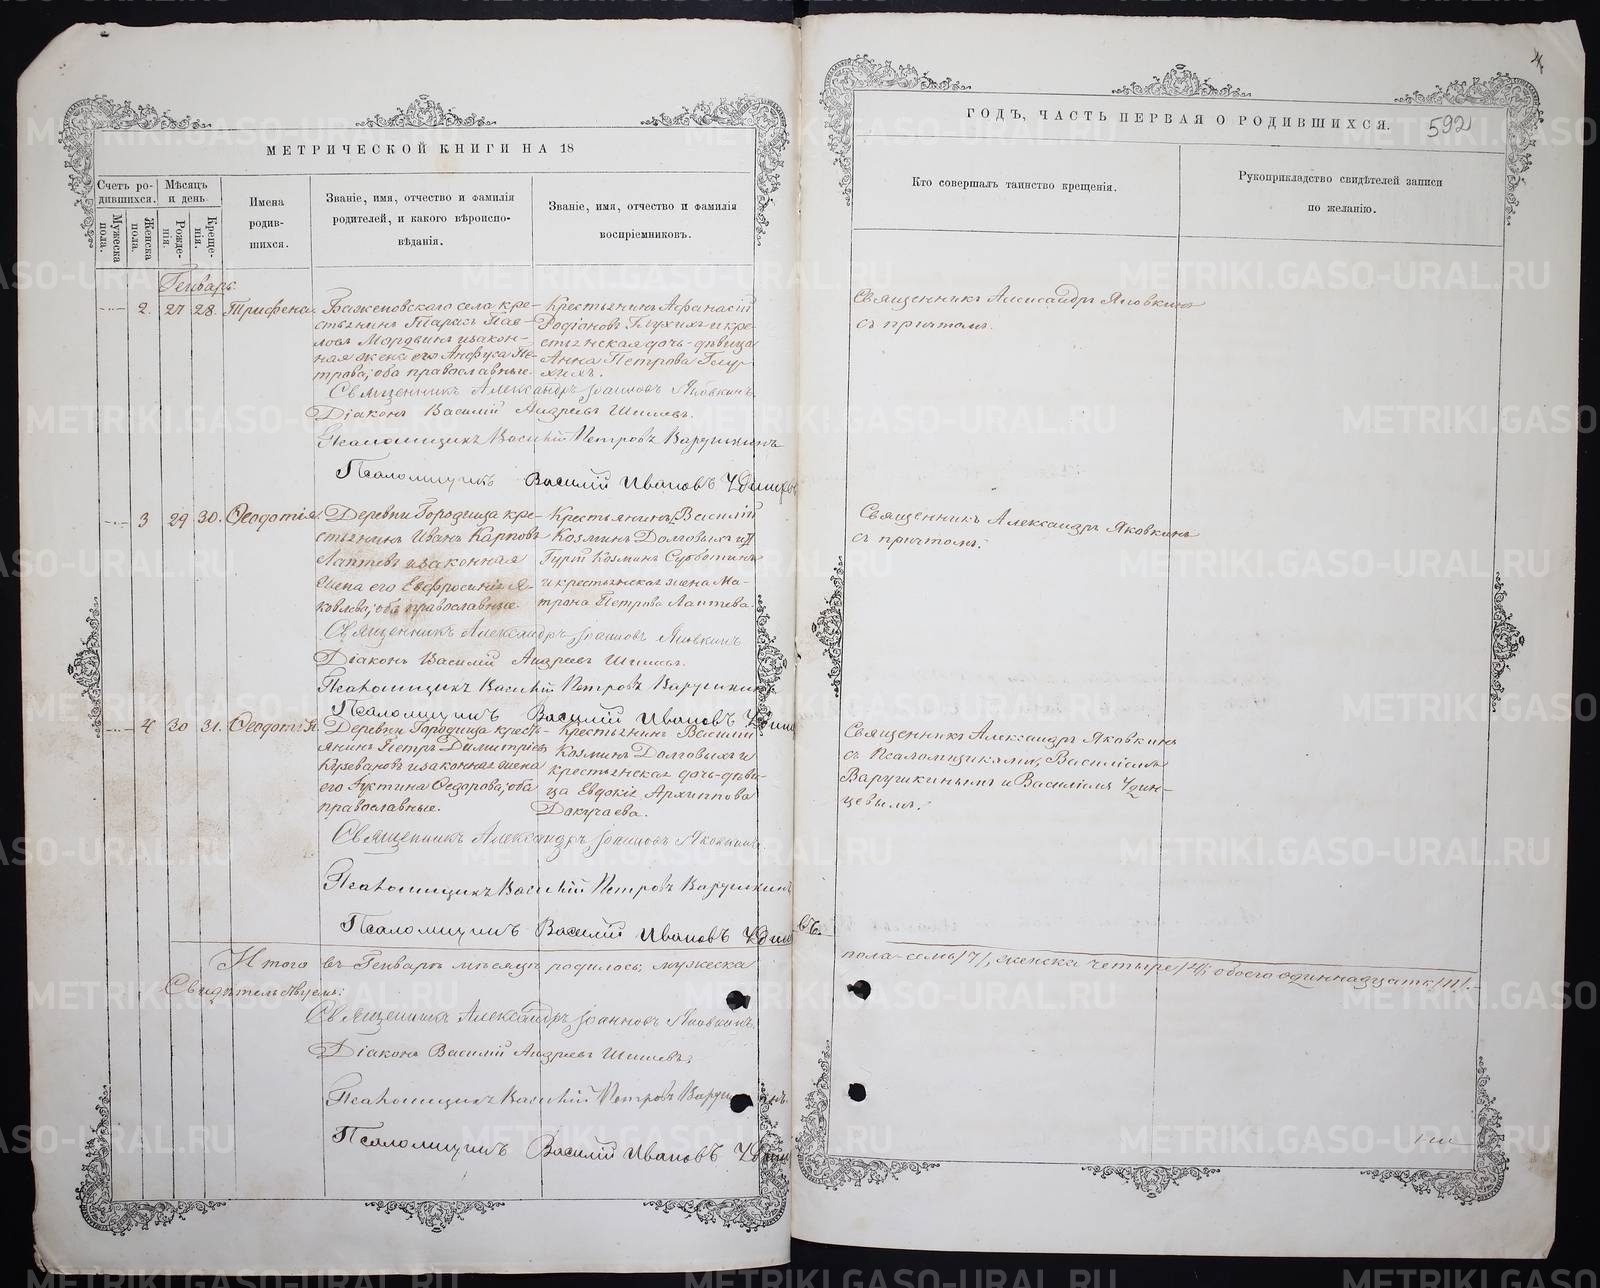 МЕТРИЧЕСКОЙ КНИГИ НА 18
Счетъ родившихся.
Мѣсяцъ и день
Мужеска пола.
Женска пола.
Рожденія.
Крещенія.
Имена родившихся.
Званіе, имя, отчество и фамилія
родителей, и какого вѣроиспо-
вѣданія.
Званіе, имя, отчество и фамилія
воспріемниковъ.
Генварь
2. 27 28. Трифена.
Баженовскаго села кре-
стьянинъ Тарасъ Пав-
ловъ Мордвинъ и закон-
ная жена его Анфуса Пе-
трова; оба православные.
Крестьянинъ Афанасій
Родіоновъ Глухихъ и кре-
стьянская дочь-дѣвица
Анна Петрова Глу-
хихъ.
Священникъ Александръ Іоанновъ Яковкинъ
Діаконъ Василій Андреевъ Шишевъ.
Псаломщикъ Василій Петровъ Варушкинъ
Псаломщикъ Василій Ивановъ Удинцевъ
3 29 30. Ѳеодотія.
Деревни Городища кре-
стьянинъ Иванъ Карповъ
Лаптевъ и законная
жена его Евфросинія Я-
ковлева; оба православные.
Крестьянинъ Василій
Козминъ Долговыхъ и
Гурій Козминъ Субботинъ
и крестьянская жена Ма-
трона Петрова Лаптева.
Священникъ Александръ Іоанновъ Яковкинъ
Діаконъ Василій Андреевъ Шишевъ.
Псаломщикъ Василій Петровъ Варушкинъ
Псаломщикъ Василій Ивановъ Удинц
4 30 31. Ѳеодотія.
Деревни Городища кресть-
янинъ Петръ Димитріевъ
и законная жена
его Іустина Ѳедорова; оба
православные.
Крестьянинъ Василій
Козминъ Долговыхъ и
крестьянская дочь-дѣви-
ца Евдокія Архиппова
Докучаева.
Священникъ Александръ Іоанновъ Яковкинъ
Псаломщикъ Василій Петровъ Варушкинъ
Псаломщикъ Василій Ивановъ Удинцевъ.
Итого въ Генварѣ мѣсяцѣ родилось; мужеска
Свидѣтельствуемъ:
Священникъ Александръ Іоанновъ Яковкинъ.
Діаконъ Василій Андреевъ Шишевъ.
Псаломщикъ Василій Петровъ Варушкинъ.
Псаломщикъ Василій Ивановъ Удинц
ГОДЪ, ЧАСТЬ ПЕРВАЯ О РОДИВШИХСЯ.
592
Кто совершалъ таинство крещенія.
Рукоприкладство свидѣтелей записи
по желанію.
Священникъ Александръ Яковкинъ
съ причтомъ.
Священникъ Александръ Яковкинъ
съ причтомъ.
Священникъ Александръ Яковкинъ
съ Псаломщиками, Василіемъ
Варушкинымъ и Василіемъ Удин-
цевымъ.
пола-семь/7/, женска четыре/4/; обоего одиннадцать/11/.
METRIKI.GASO-URAL.RU